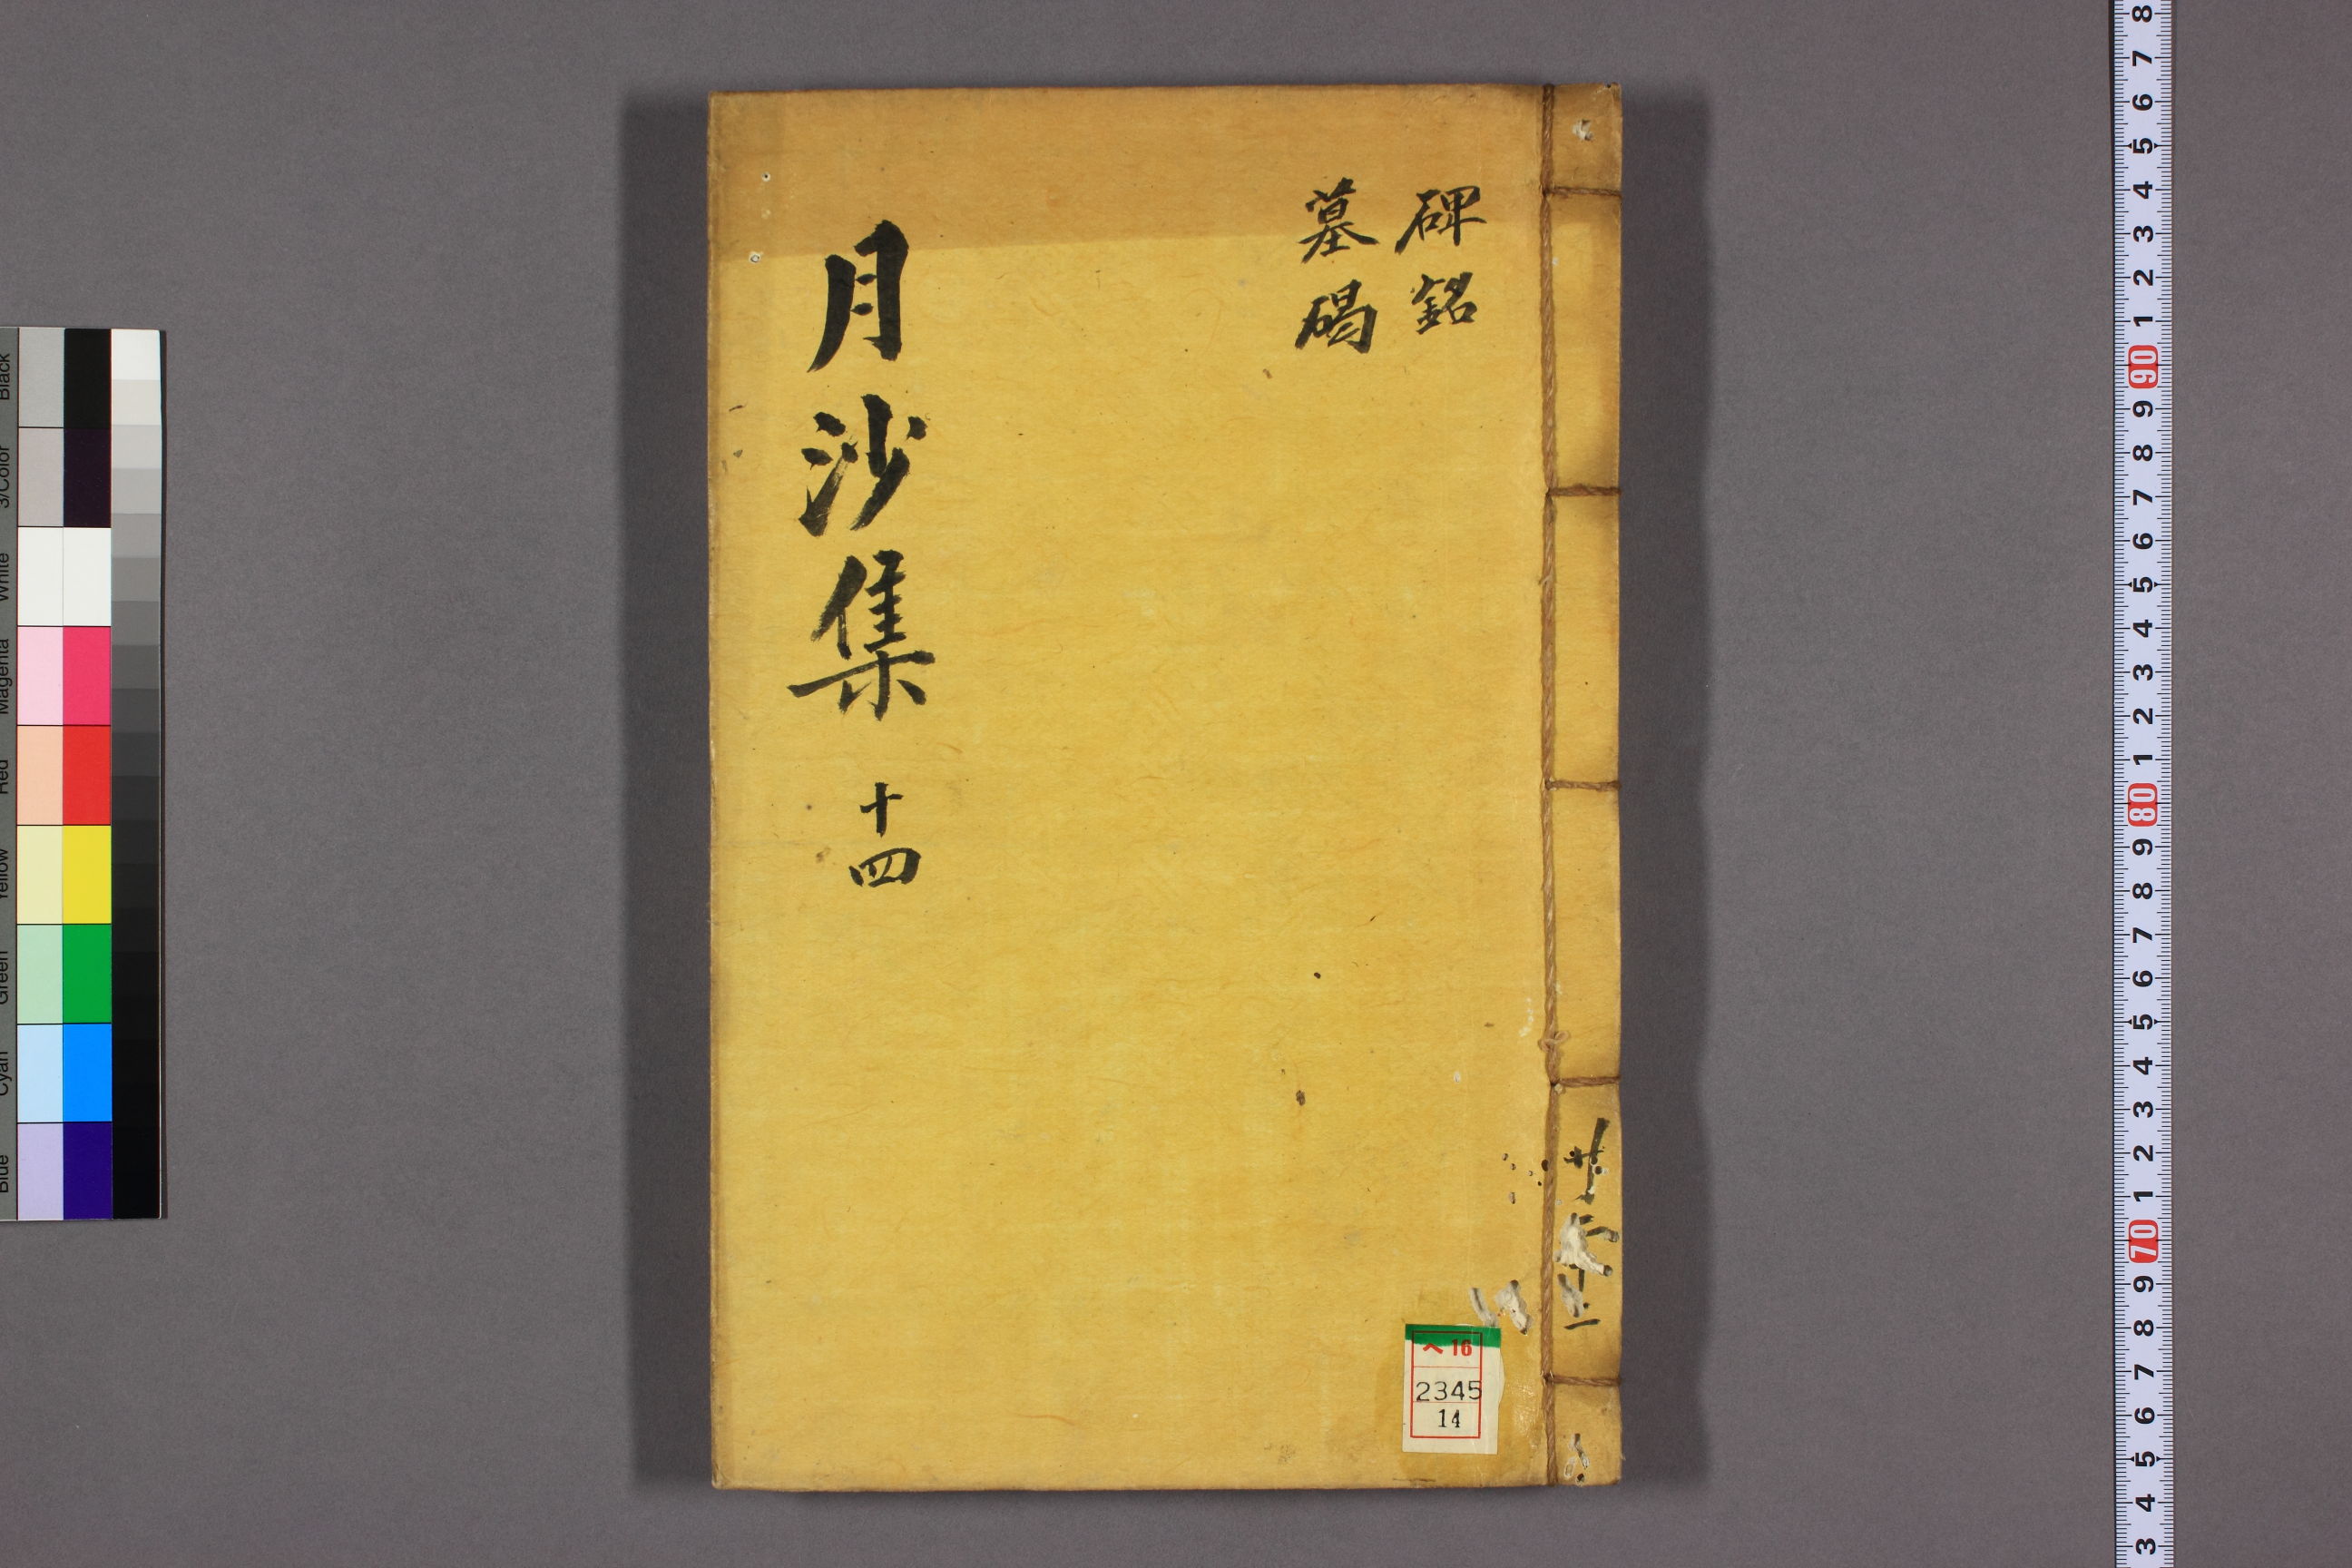 碑銘
墓碣
月沙集 十四
ヘ 16
2345
14
Black
3/Color
White
Magenta
Red
Yellow
Green
Cyan
Blue
8
7
6
5
4
3
2
1
90
9
8
7
6
5
4
3
2
1
80
9
8
7
6
5
4
3
2
1
70
9
8
7
6
5
4
3